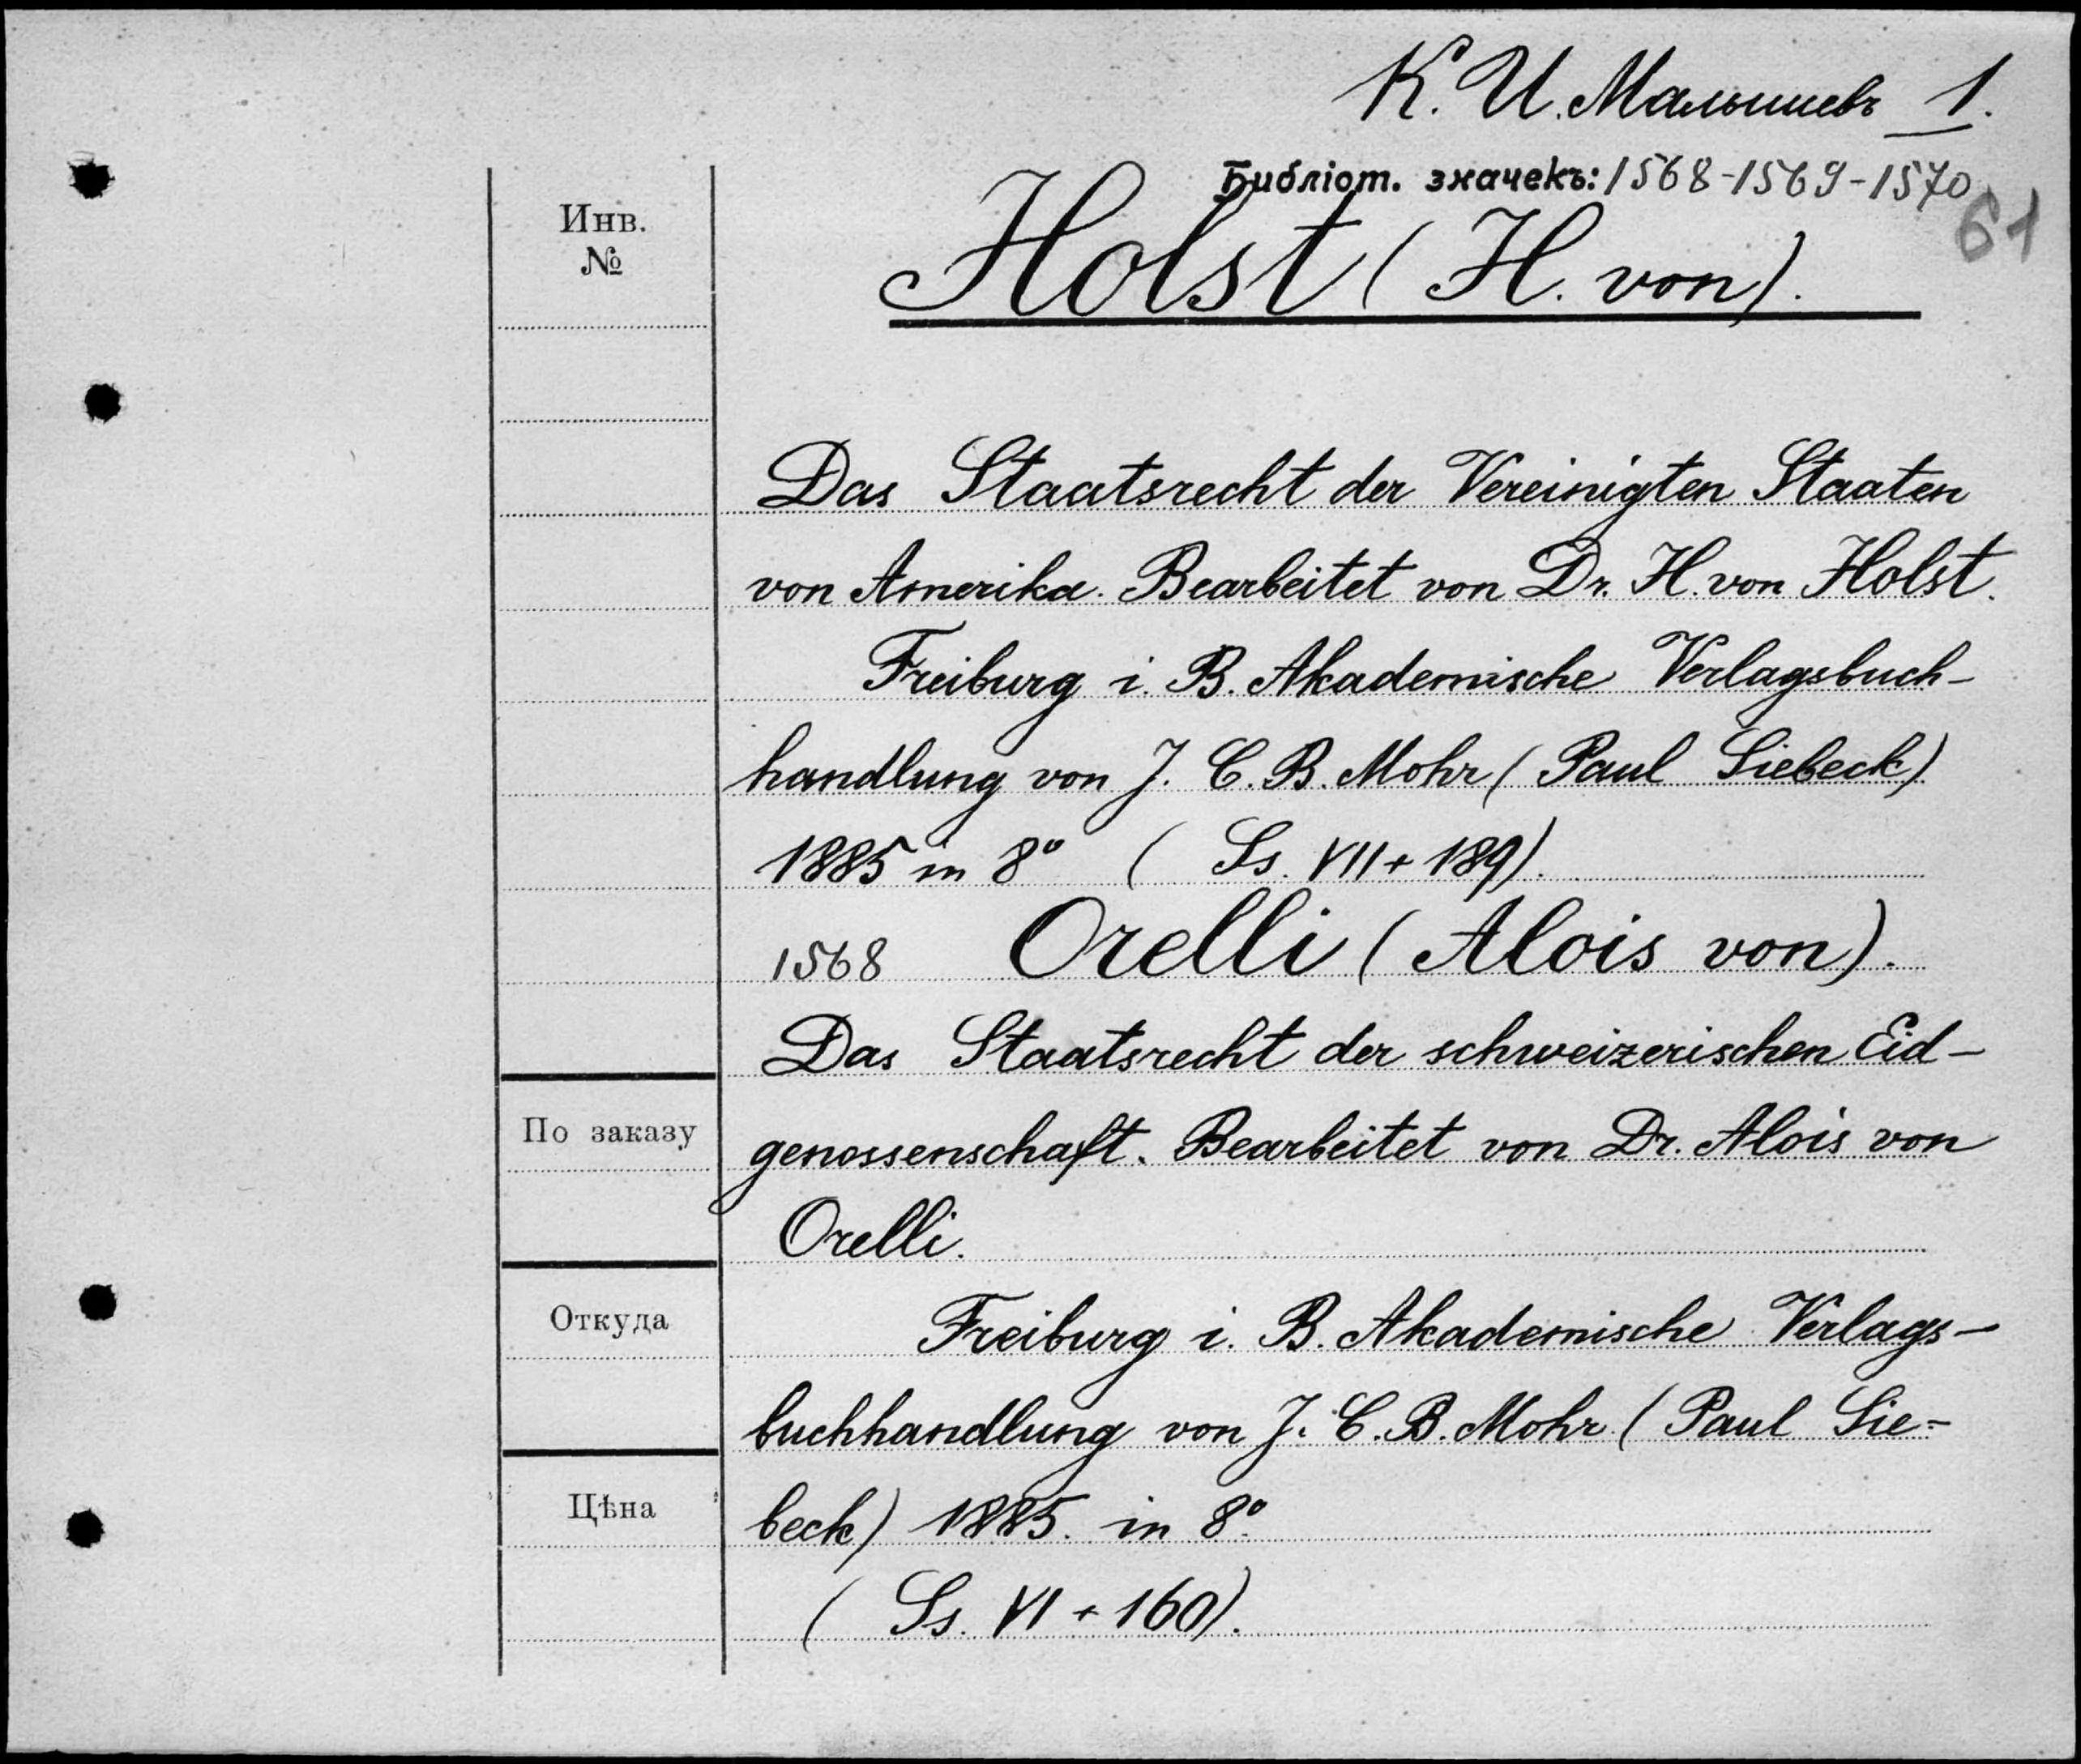 К. И. Малышевъ 1.
Библіот. значекъ: 1568-1569-1570
61
Инв.
№
Holst (H. von).
Das Staatsrecht der Vereinigten Staaten
von Amerika. Bearbeitet von Dr. H. von Holst.
Freiburg i. B. Akademische Verlagsbuch-
handlung von J. C. B. Mohr (Paul Siebeck)
1885 in 8° (Ss. VII + 189).
1568 Orelli (Alois von).
Das Staatsrecht der schweizerischen Eid-
genossenschaft. Bearbeitet von Dr. Alois von
Orelli.
Freiburg i. B. Akademische Verlags-
buchhandlung von J. C. B. Mohr (Paul Sie-
beck) 1885. in 8°.
(Ss. VI + 160).
По заказу
Откуда
Цѣна